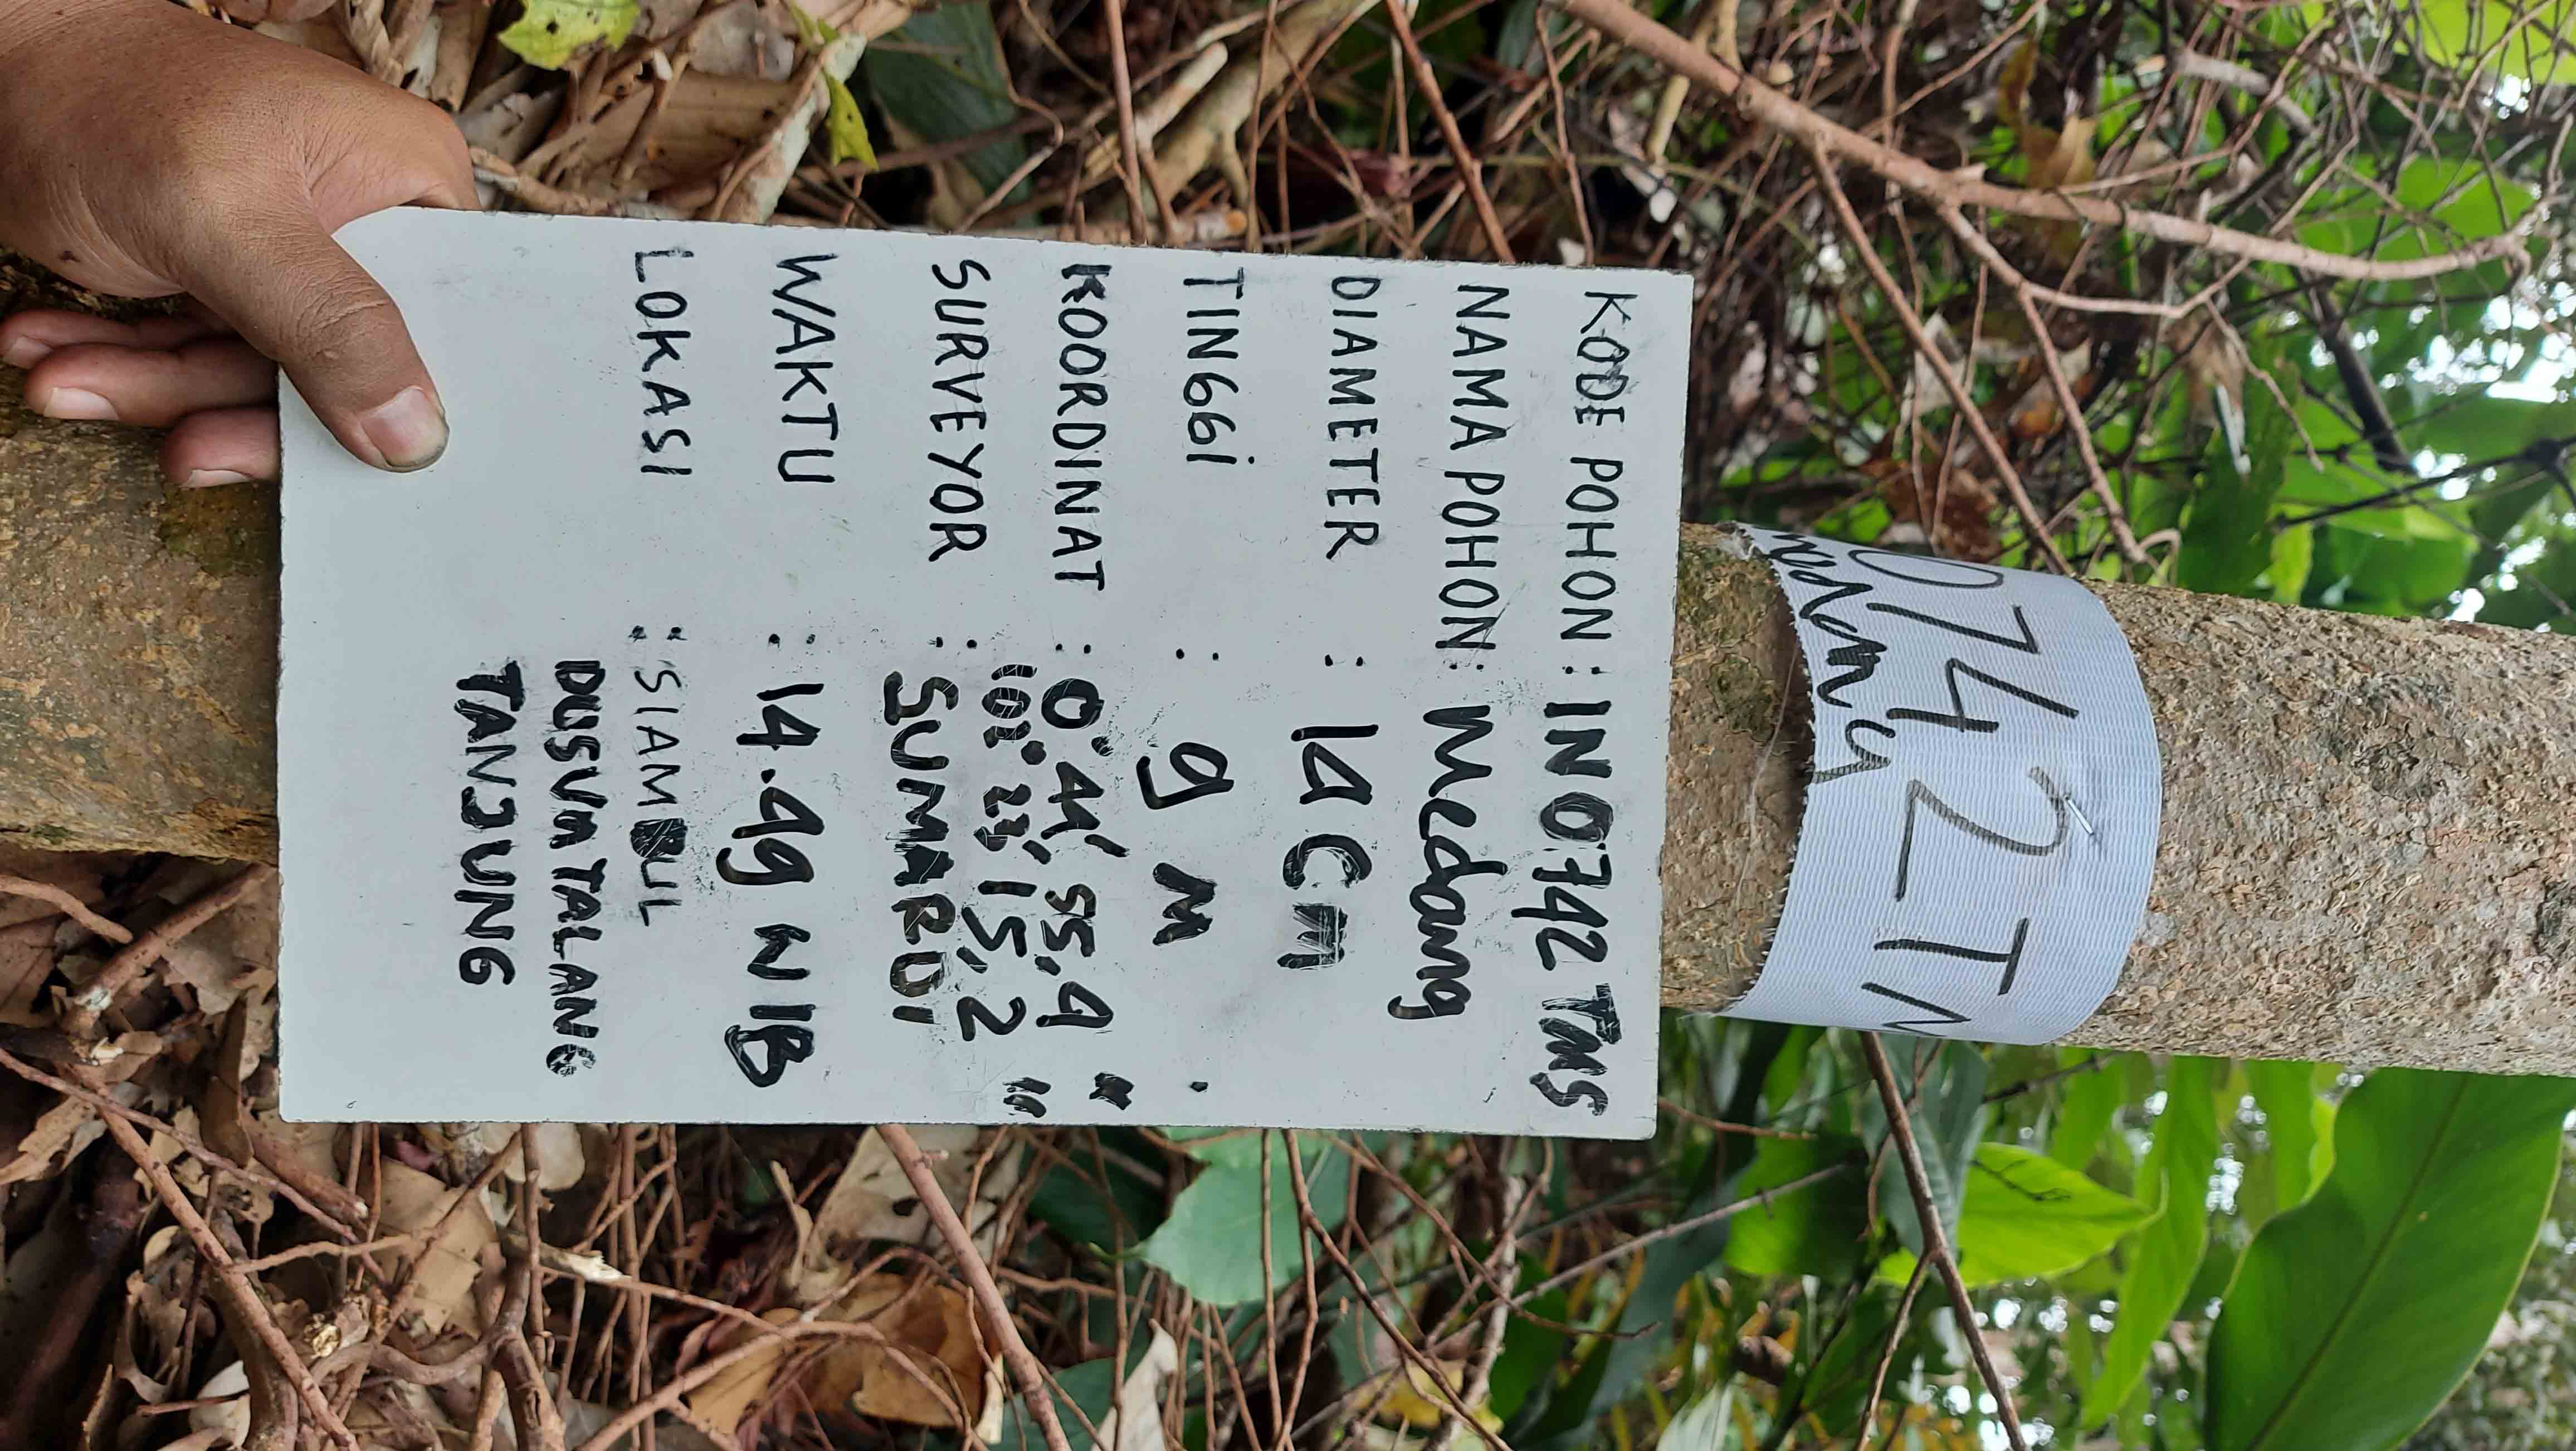 0742 TM
medang
KODE POHON : IN 0742 TMS
NAMA POHON : Medang
DIAMETER : 14 Cm
TINGGI : 9 M
KOORDINAT : 0° 44' 55,4 "
102° 23' 15,2 "
SURVEYOR : SUMARDI
WAKTU : 14.49 WIB
LOKASI : SIAMBUL
DUSUN TALANG
TANJUNG